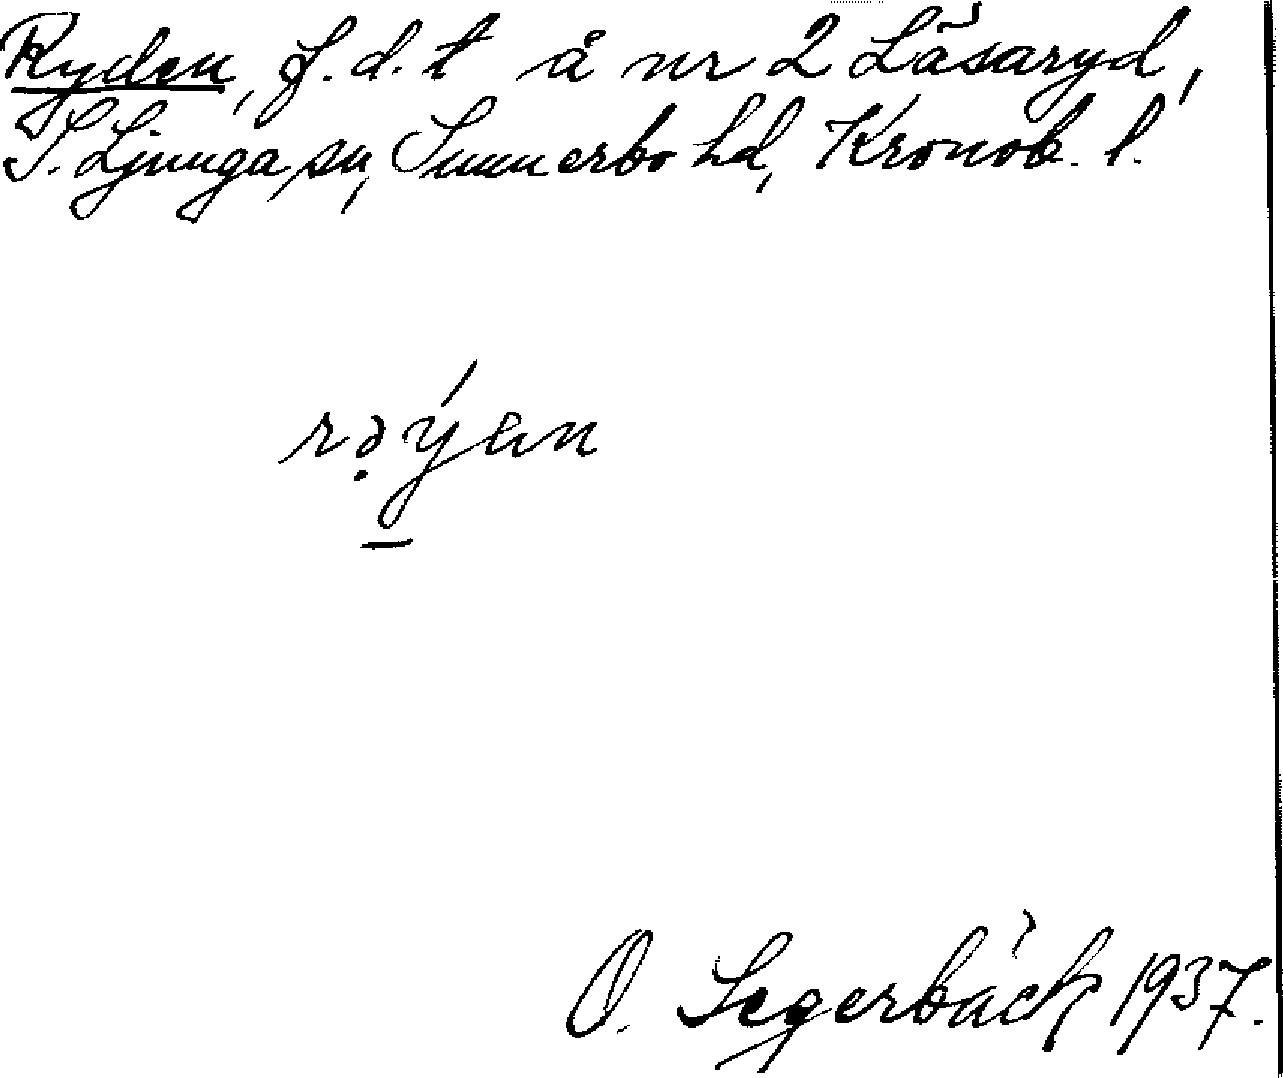 Ryden, f.d. t å nr 2 Läsaryd,
S. Ljunga sn, Sunnerbo hd, Kronob. l.
O. Segerbäck 1937.